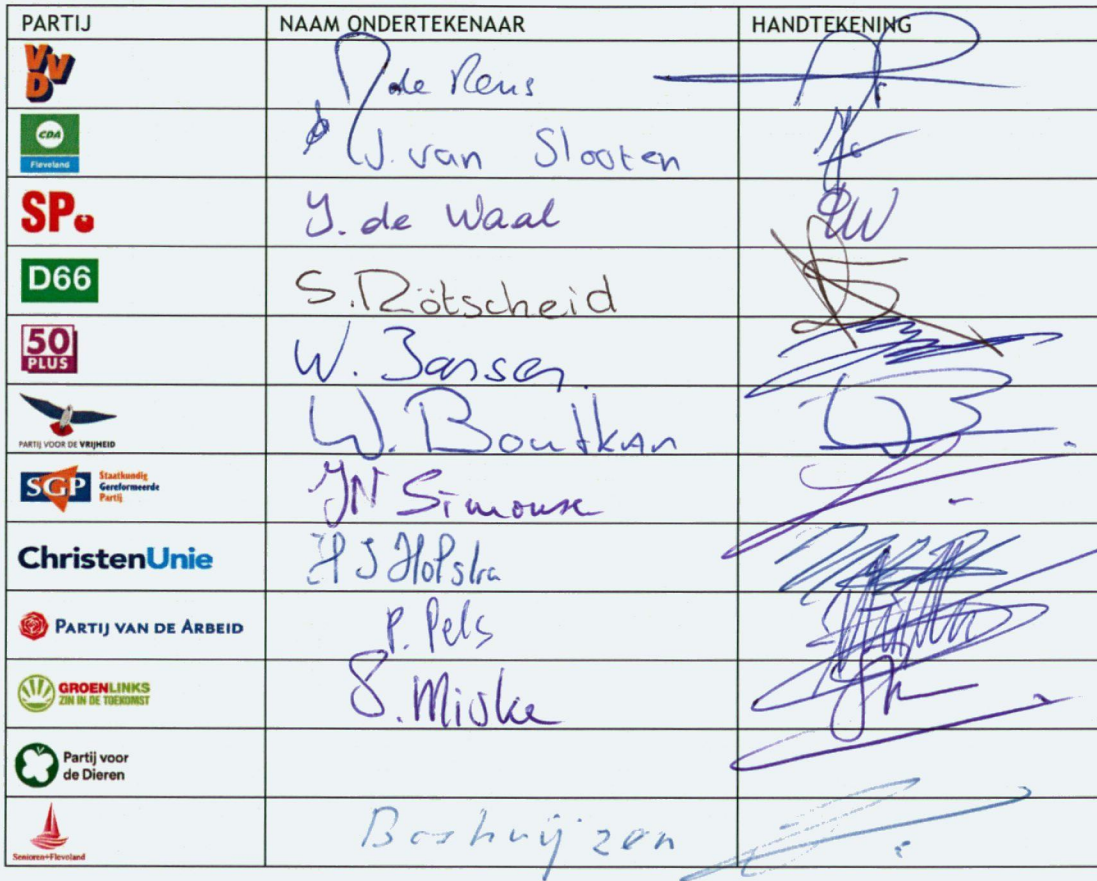 PARTIJ NAAM ONDERTEKENAAR HANDTEKENING
VVD de Reus
CDA
Flevoland J. van Slooten
SP. J. de Waal
D66 S. Rötscheid
50
PLUS W. Jansen
PARTIJ VOOR DE VRIJHEID W. Boutkan
SGP Staatkundig
Gereformeerde
Partij JN Simonse
ChristenUnie HJ Hofstra
PARTIJ VAN DE ARBEID P. Pels
GROENLINKS
ZIN IN DE TOEKOMST S. Miske
Partij voor
de Dieren
Senioren+Flevoland Boshuijzen